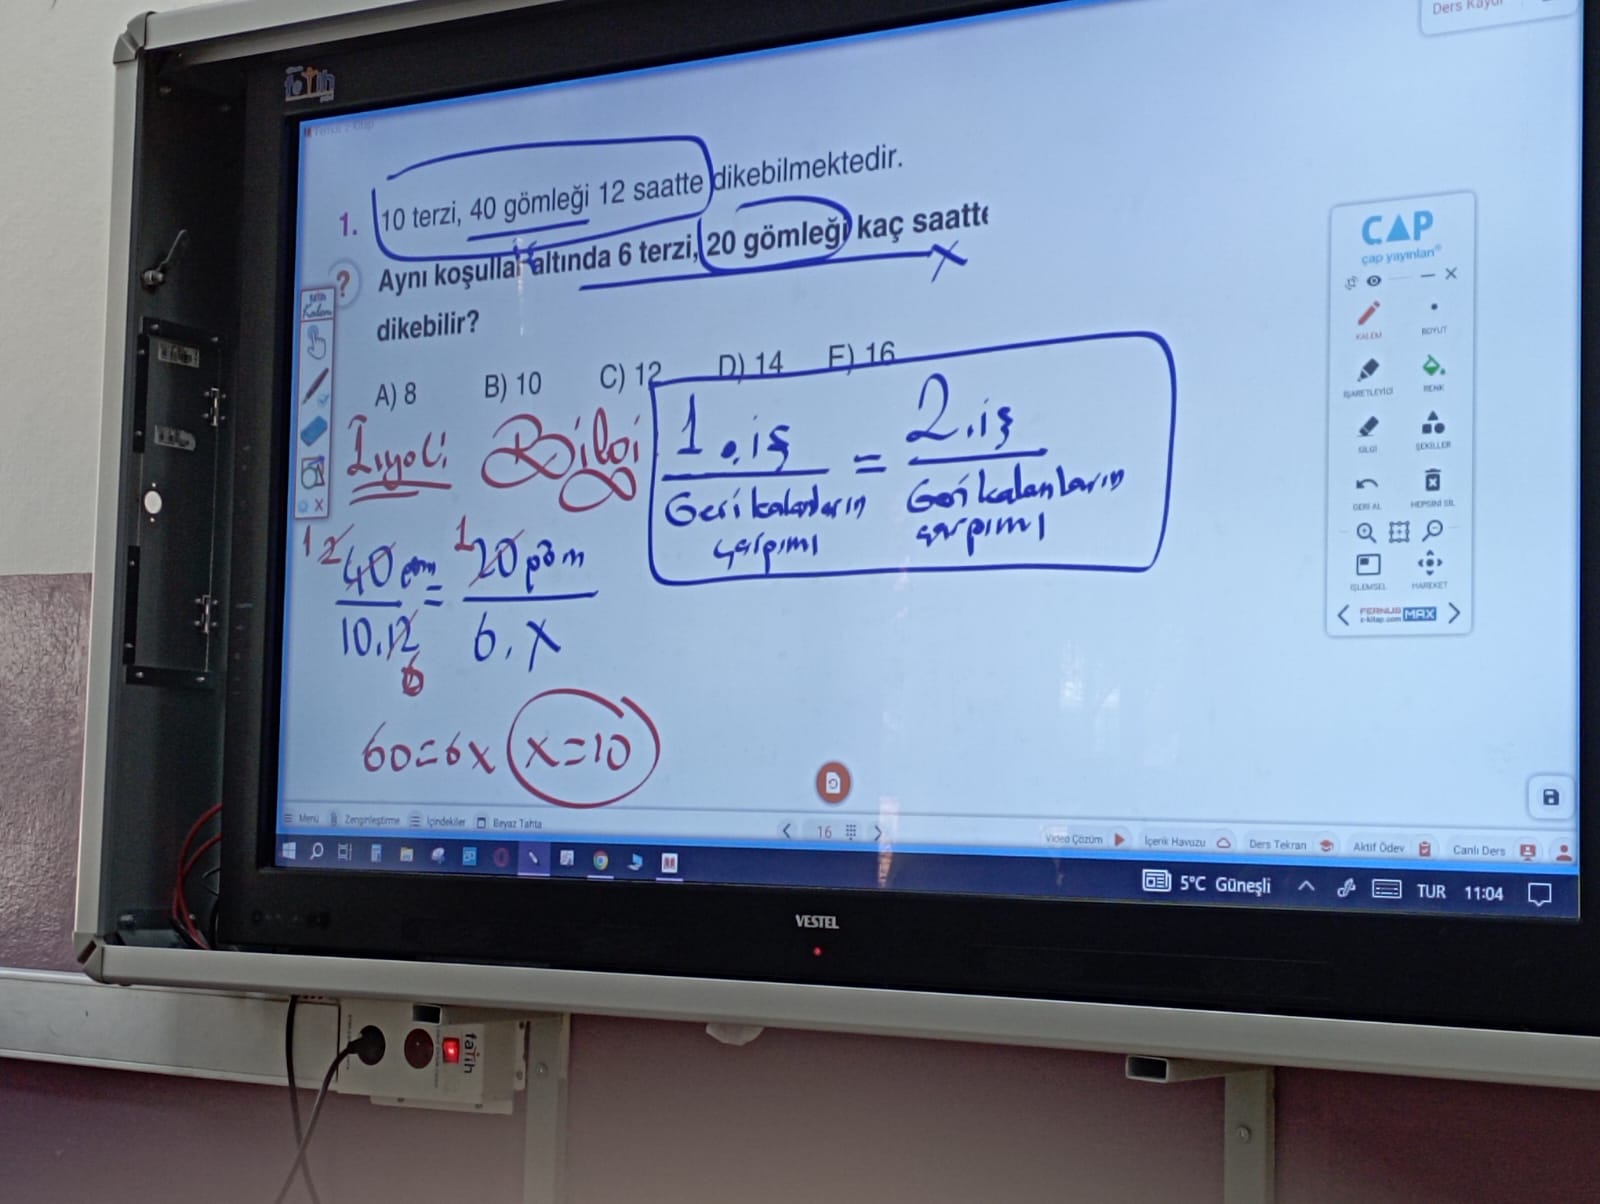 Ders Kaydı
fatih
Fernus e-kitap
1. 10 terzi, 40 gömleği 12 saatte dikebilmektedir.
Aynı koşullar altında 6 terzi, 20 gömleği kaç saatte
dikebilir?
A) 8 B) 10 C) 12 D) 14 E) 16
Bilgi
1. iş = 2. iş
Geri kalanların Geri kalanların
çarpımı çarpımı
1 2 40 = 1 20
10.12 6.x
6
60=6x x=10
fatih
Kalem
ÇAP
çap yayınları
KALEM BOYUT
İŞARETLEYİCİ RENK
SİLGİ ŞEKİLLER
GERİ AL HEPSİNİ SİL
İŞLEMSEL HAREKET
FERNUS MAX
e-kitap.com
Menü Zenginleştirme İçindekiler Beyaz Tahta 16 Video Çözüm İçerik Havuzu Ders Tekrarı Aktif Ödev Canlı Ders
5°C Güneşli TUR 11:04
VESTEL
fatih